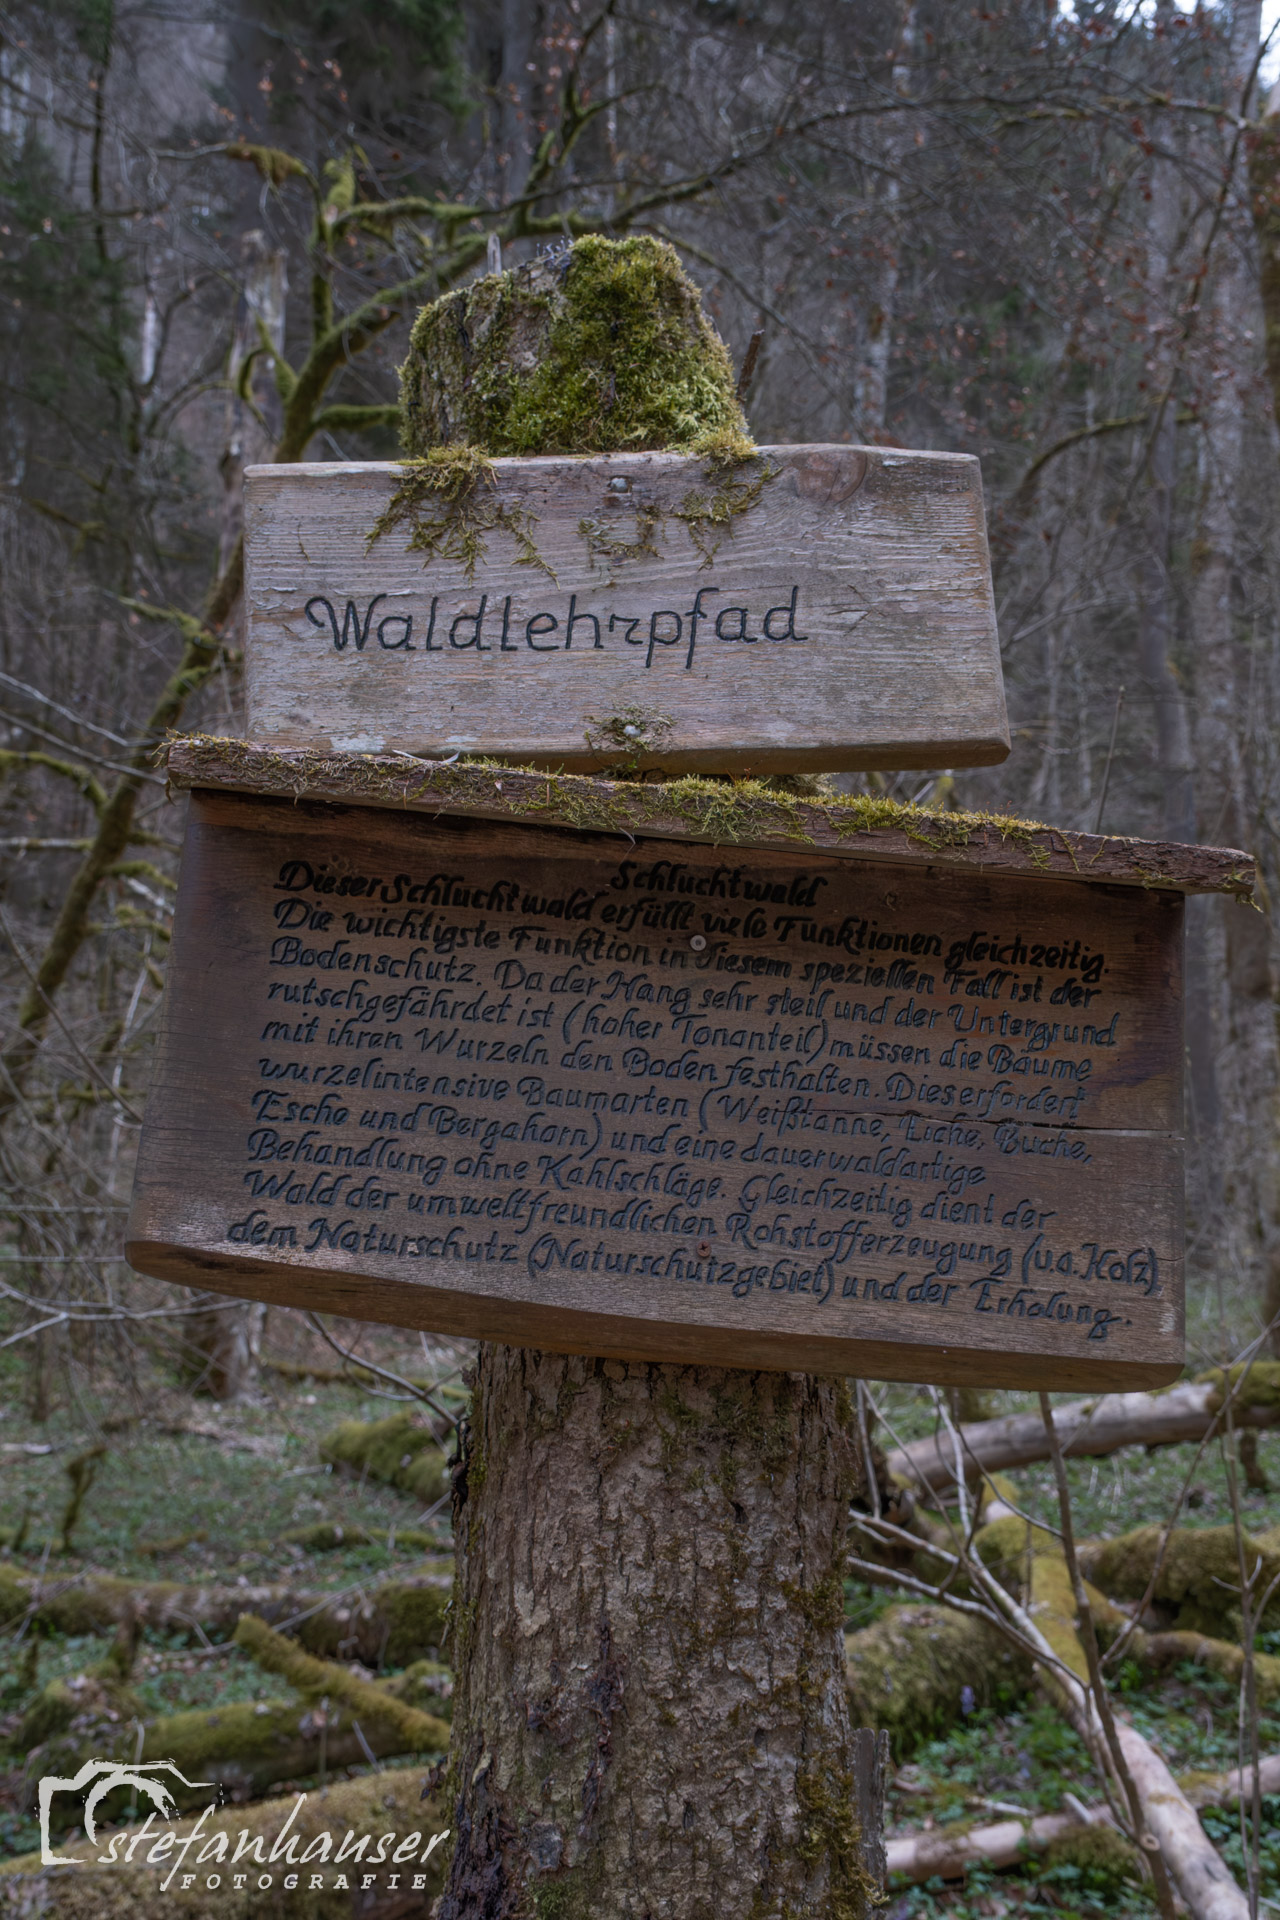 Waldlehrpfad
Schluchtwald
Dieser Schluchtwald erfüllt viele Funktionen gleichzeitig.
Die wichtigste Funktion in diesem speziellen Fall ist der
Bodenschutz. Da der Hang sehr steil und der Untergrund
rutschgefährdet ist (hoher Tonanteil) müssen die Bäume
mit ihren Wurzeln den Boden festhalten. Dies erfordert
wurzelintensive Baumarten (Weißtanne, Eiche, Buche,
Esche und Bergahorn) und eine dauerwaldartige
Behandlung ohne Kahlschläge. Gleichzeitig dient der
Wald der umweltfreundlichen Rohstofferzeugung (u.a. Holz)
dem Naturschutz (Naturschutzgebiet) und der Erholung.
stefanhauser
FOTOGRAFIE